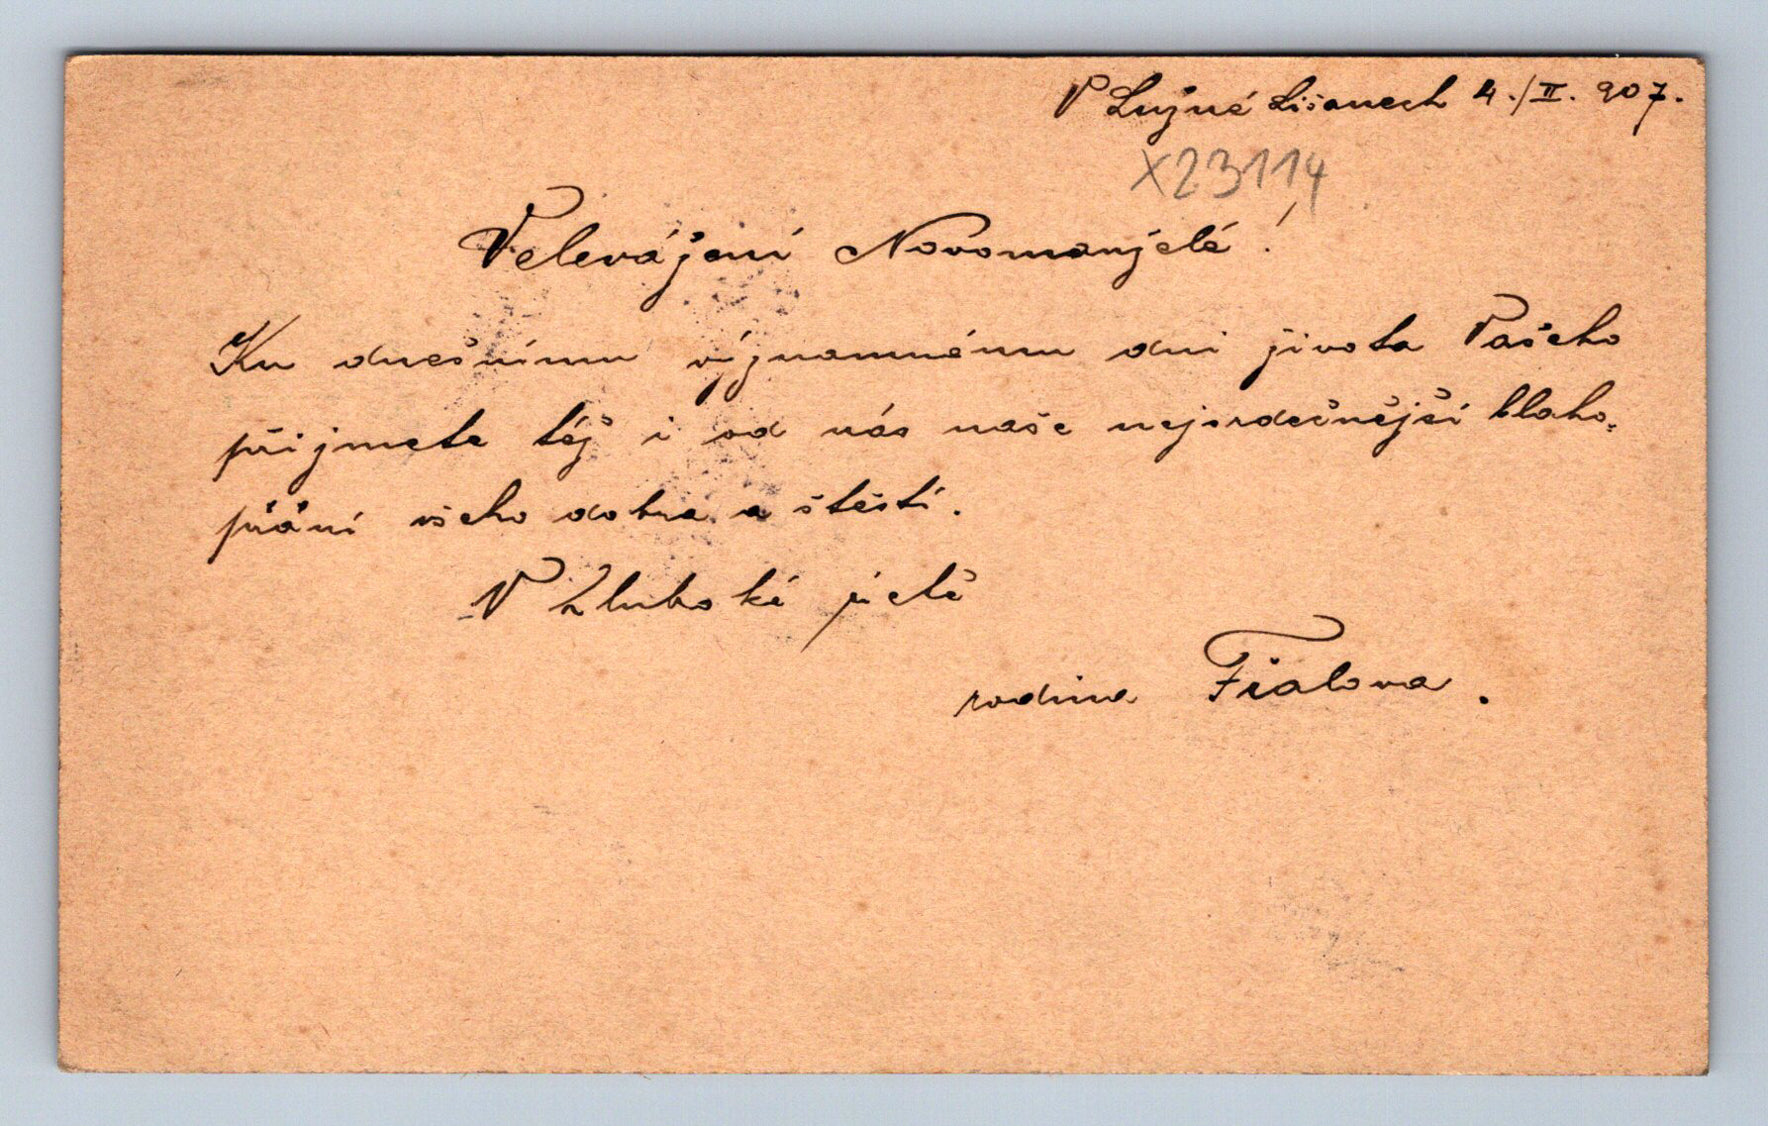 V Lužné Lišanech 4./II. 907.
X23114
Velevážení Novomanželé!
Ku dnešnímu významnému dni života Vašeho
přijmete též i od nás naše nejsrdečnější blaho-
přání všeho dobra a štěstí.
V hluboké úctě
rodina Fialova.